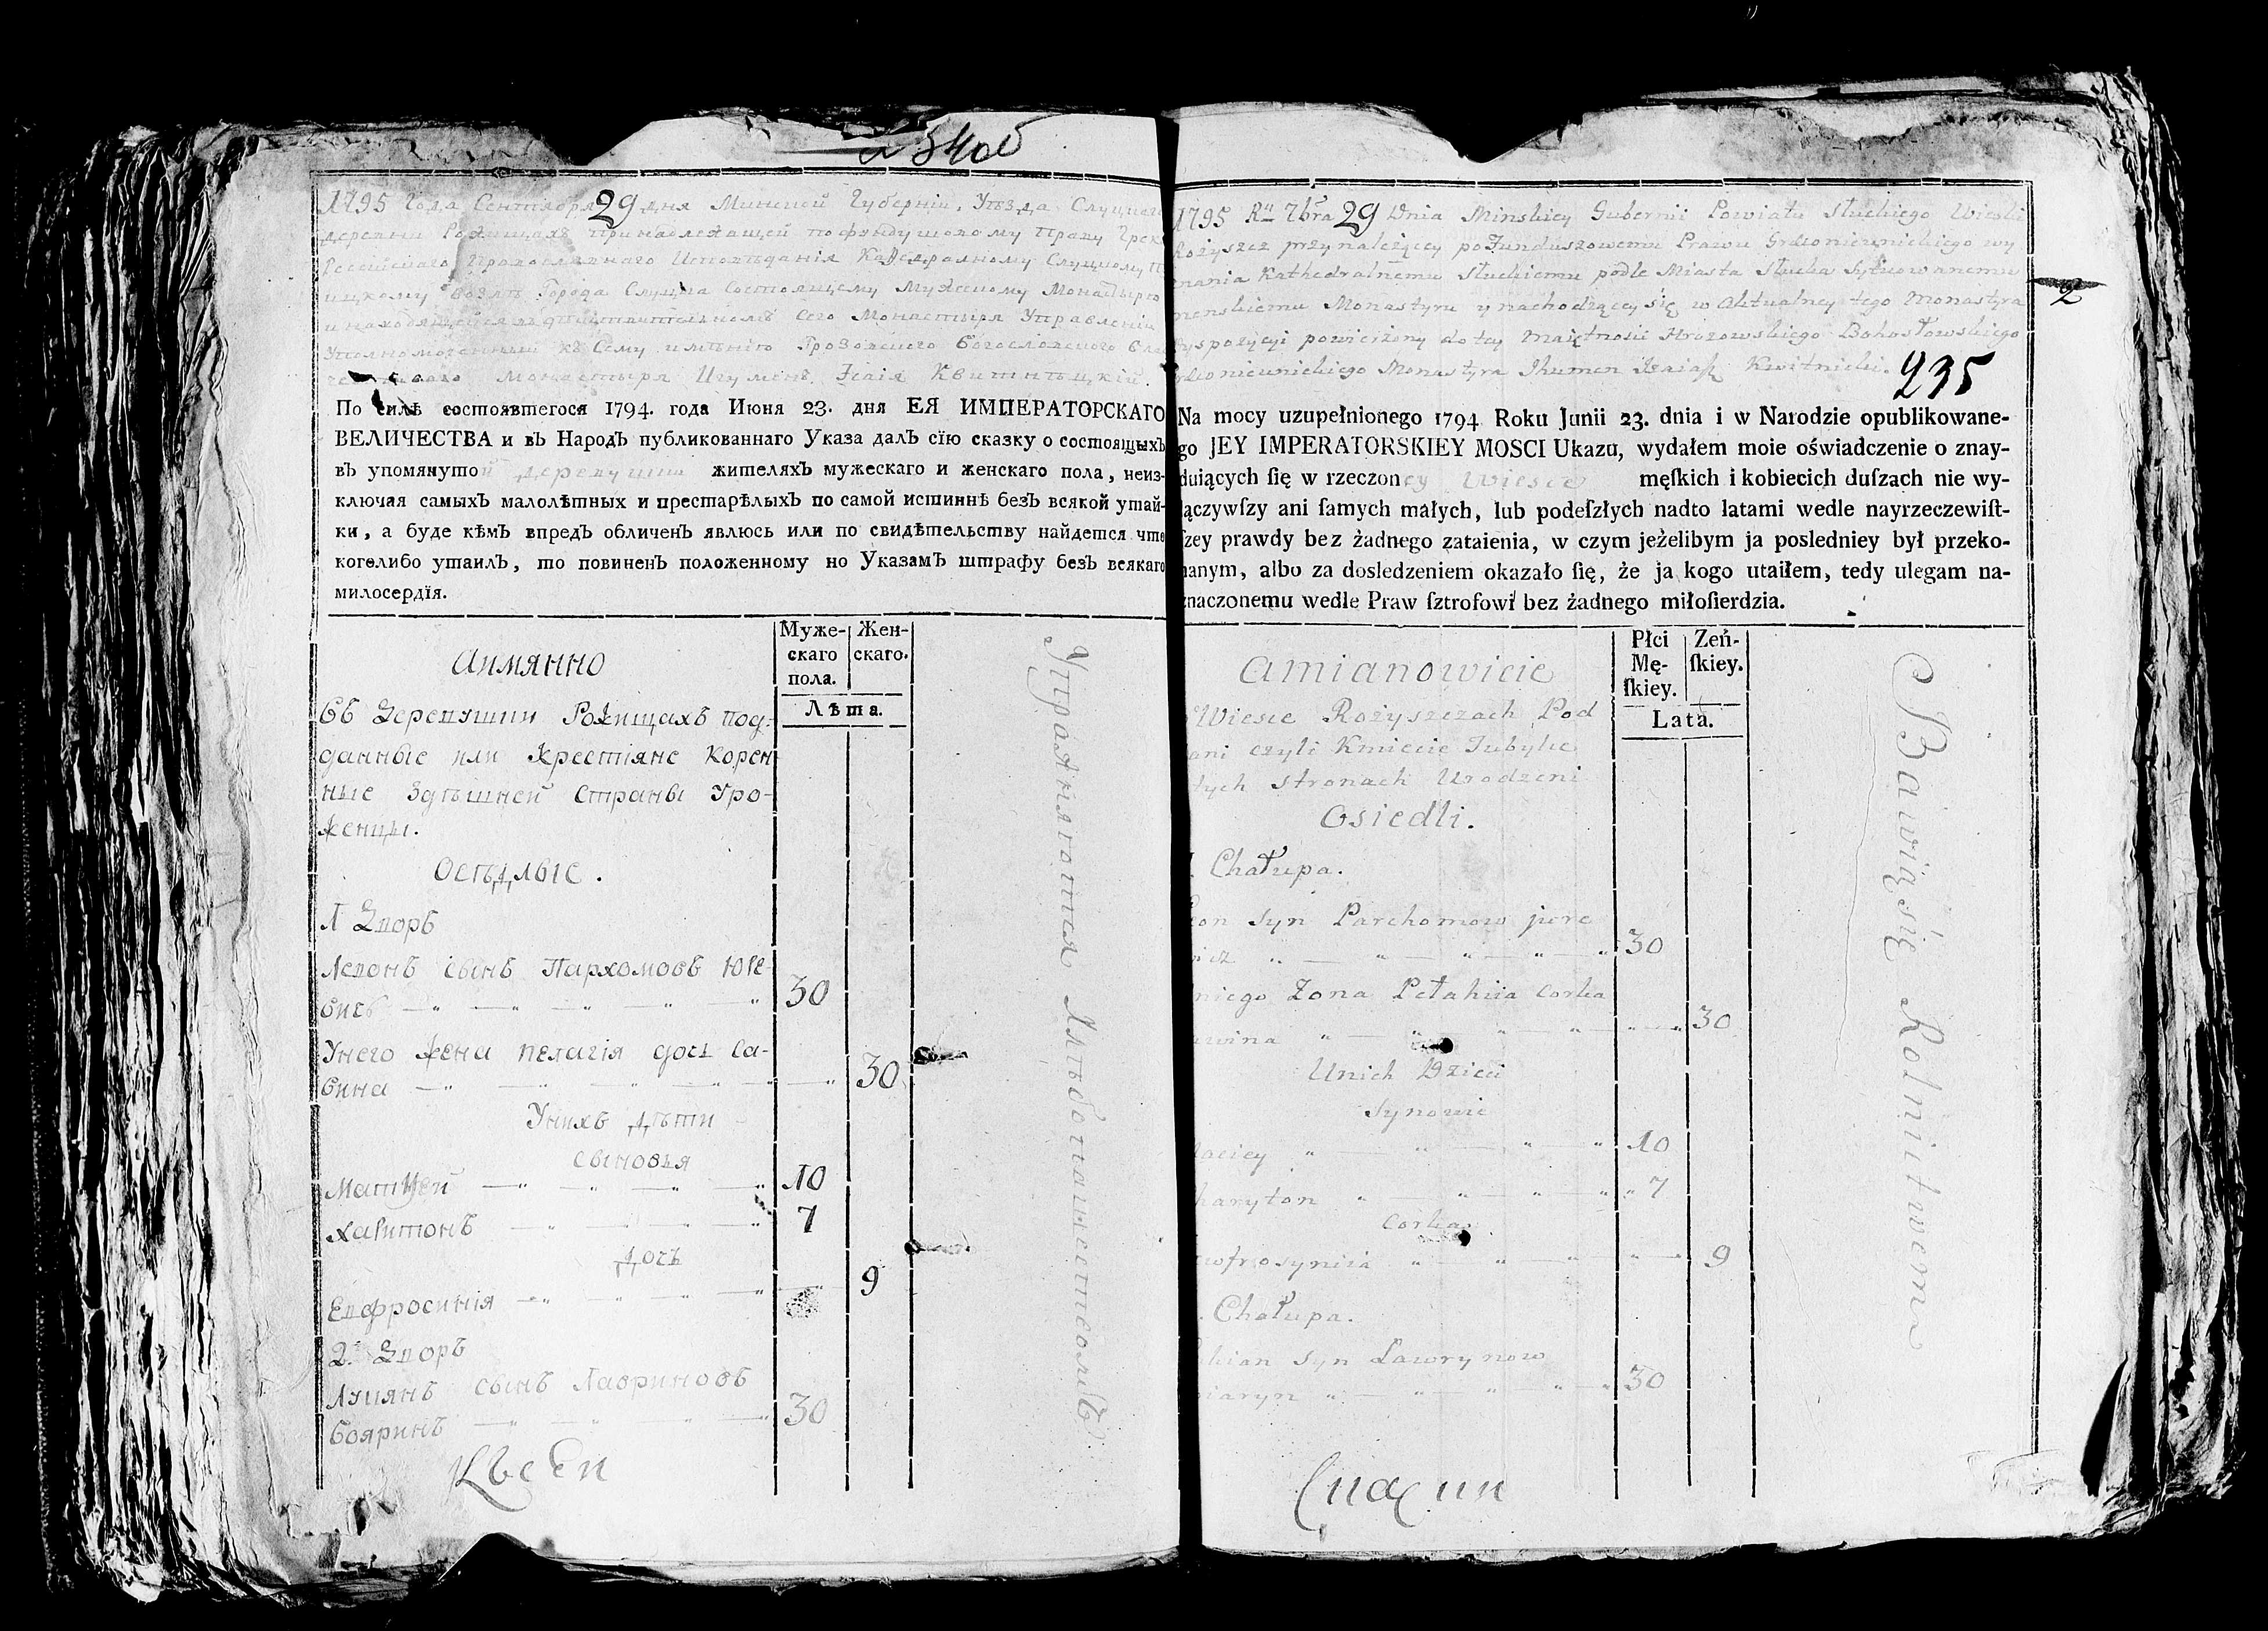 1795 Года Сентября 29 дня Минской Губернїи, Уѣзда Слуцкаго
деревни Рожищахъ принадлежащей по фундушовому праву Греко
Россїйскаго Православнаго Исповѣданїя Каѳедралному Слуцкому
возлѣ Города Слуцка состоящему Мужескому Монастырю
и находящейся въ дѣйствительномъ сего Монастыря Управленїи
Уполномоченный къ Сему имѣнїю Грозовскаго Богословскаго
Монастыря Игуменъ Исаїя Квитнѣцкїй.
По силѣ состоявшегося 1794. года Июня 23. дня ЕЯ ИМПЕРАТОРСКАГО
ВЕЛИЧЕСТВА и въ Народъ публикованнаго Указа далъ сїю сказку о состоящыхъ
въ упомянутой деревушки жителяхъ мужескаго и женскаго пола, неиз-
ключая самыхъ малолѣтныхъ и престарѣлыхъ по самой истиннѣ безъ всякой утай-
ки, а буде кѣмъ впредъ обличенъ явлюсь или по свидѣтельству найдется что
коголибо утаилъ, то повиненъ положенному но Указамъ штрафу безъ всякаго
милосердїя.
Муже-
скаго
пола.
Жен-
скаго.
Лѣта.
Аимянно
Въ Деревушки Рожищахъ под-
данные или Хрестїяне корен
ные Здѣшней страны Уро-
женцы.
Осѣдлые.
1 Дворъ
Леонъ сынъ Пархомовъ Юре-
вичъ 30
Унего жена Пелагїя дочь Са-
вина 30
Унихъ Дѣти
сыновья
Матѵей 10
Харитонъ 7
Дочь
Евфросинїя 9
2. Дворъ
Лукїянъ сынъ Лавриновъ
Бояринъ 30
Упражняются Хлѣбопашествомъ
1795 Ru 7bra 29 Dnia Minskiey Gubernii Powiatu Słuckiego Wioski
Rożyszcz przynależącey po Funduszowemu Prawu Grekonieunickiego wy
znania Kathedralnemu Słuckiemu podle Miasta Słucka Sytuowanemu
menskiemu Monastyru y nachodzącey się w Aktualney tego Monastyra
Dyspozycyi powierzony do tey Maiętnosci Hrozowskiego Bohosłowskiego
Grekonieunickiego Monastyra Ihumen Izaiasz Kwitnicki.
235
2
Na mocy uzupełnionego 1794 Roku Junii 23. dnia i w Narodzie opublikowane-
go JEY IMPERATORSKIEY MOSCI Ukazu, wydałem moie oświadczenie o znay-
duiących ſię w rzeczoney Wiesce męſkich i kobiecich duſzach nie wy-
łączywſzy ani ſamych małych, lub podeſzłych nadto latami wedle nayrzeczewiſt-
ſzey prawdy bez żadnego zataienia, w czym jeżelibym ja posledniey był przeko-
nanym, albo za dosledzeniem okazało ſię, że ja kogo utaiłem, tedy ulegam na-
znaczonemu wedle Praw ſztrofowi bez żadnego miłoſierdzia.
Płci
Mę-
ſkiey.
Zeń-
ſkiey.
Lata.
Amianowicie
Wiesce Rożyszczach Pod
dani czyli Kmiecie Tubylce
tych stronach Urodzeni
Osiedli.
Chałupa.
Leon syn Parchomow jure
wicz 30
niego Zona Pełahiia Corka
Sawina 30
Unich Dzieci
Synowie
Maciey 10
Charyton 7
Corka
Ewfrosyniia 9
Chałupa.
Łukian syn Ławrynow
Boiaryn 30
Bawią się Rolnictwem